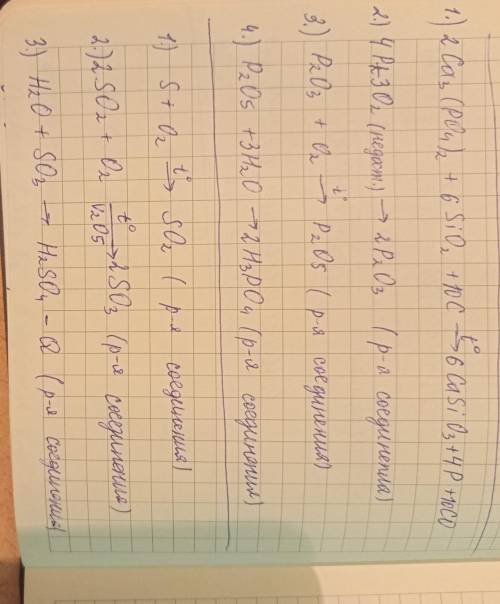 1.) 2Ca3(PO4)2 + 6SiO2 + 10C t°→ 6CaSiO3 + 4P + 10CO
2.) 4P+3O2 (недост.) → 2P2O3 (р-я соединения)
3.) P2O3 + O2 t°→ P2O5 (р-я соединения)
4.) P2O5 + 3H2O → 2H3PO4 (р-я соединения)
1.) S + O2 t°→ SO2 (р-я соединения)
2.) 2SO2 + O2 t°→ V2O5 2SO3 (р-я соединения)
3.) H2O + SO3 → H2SO4 - Q (р-я соединения)